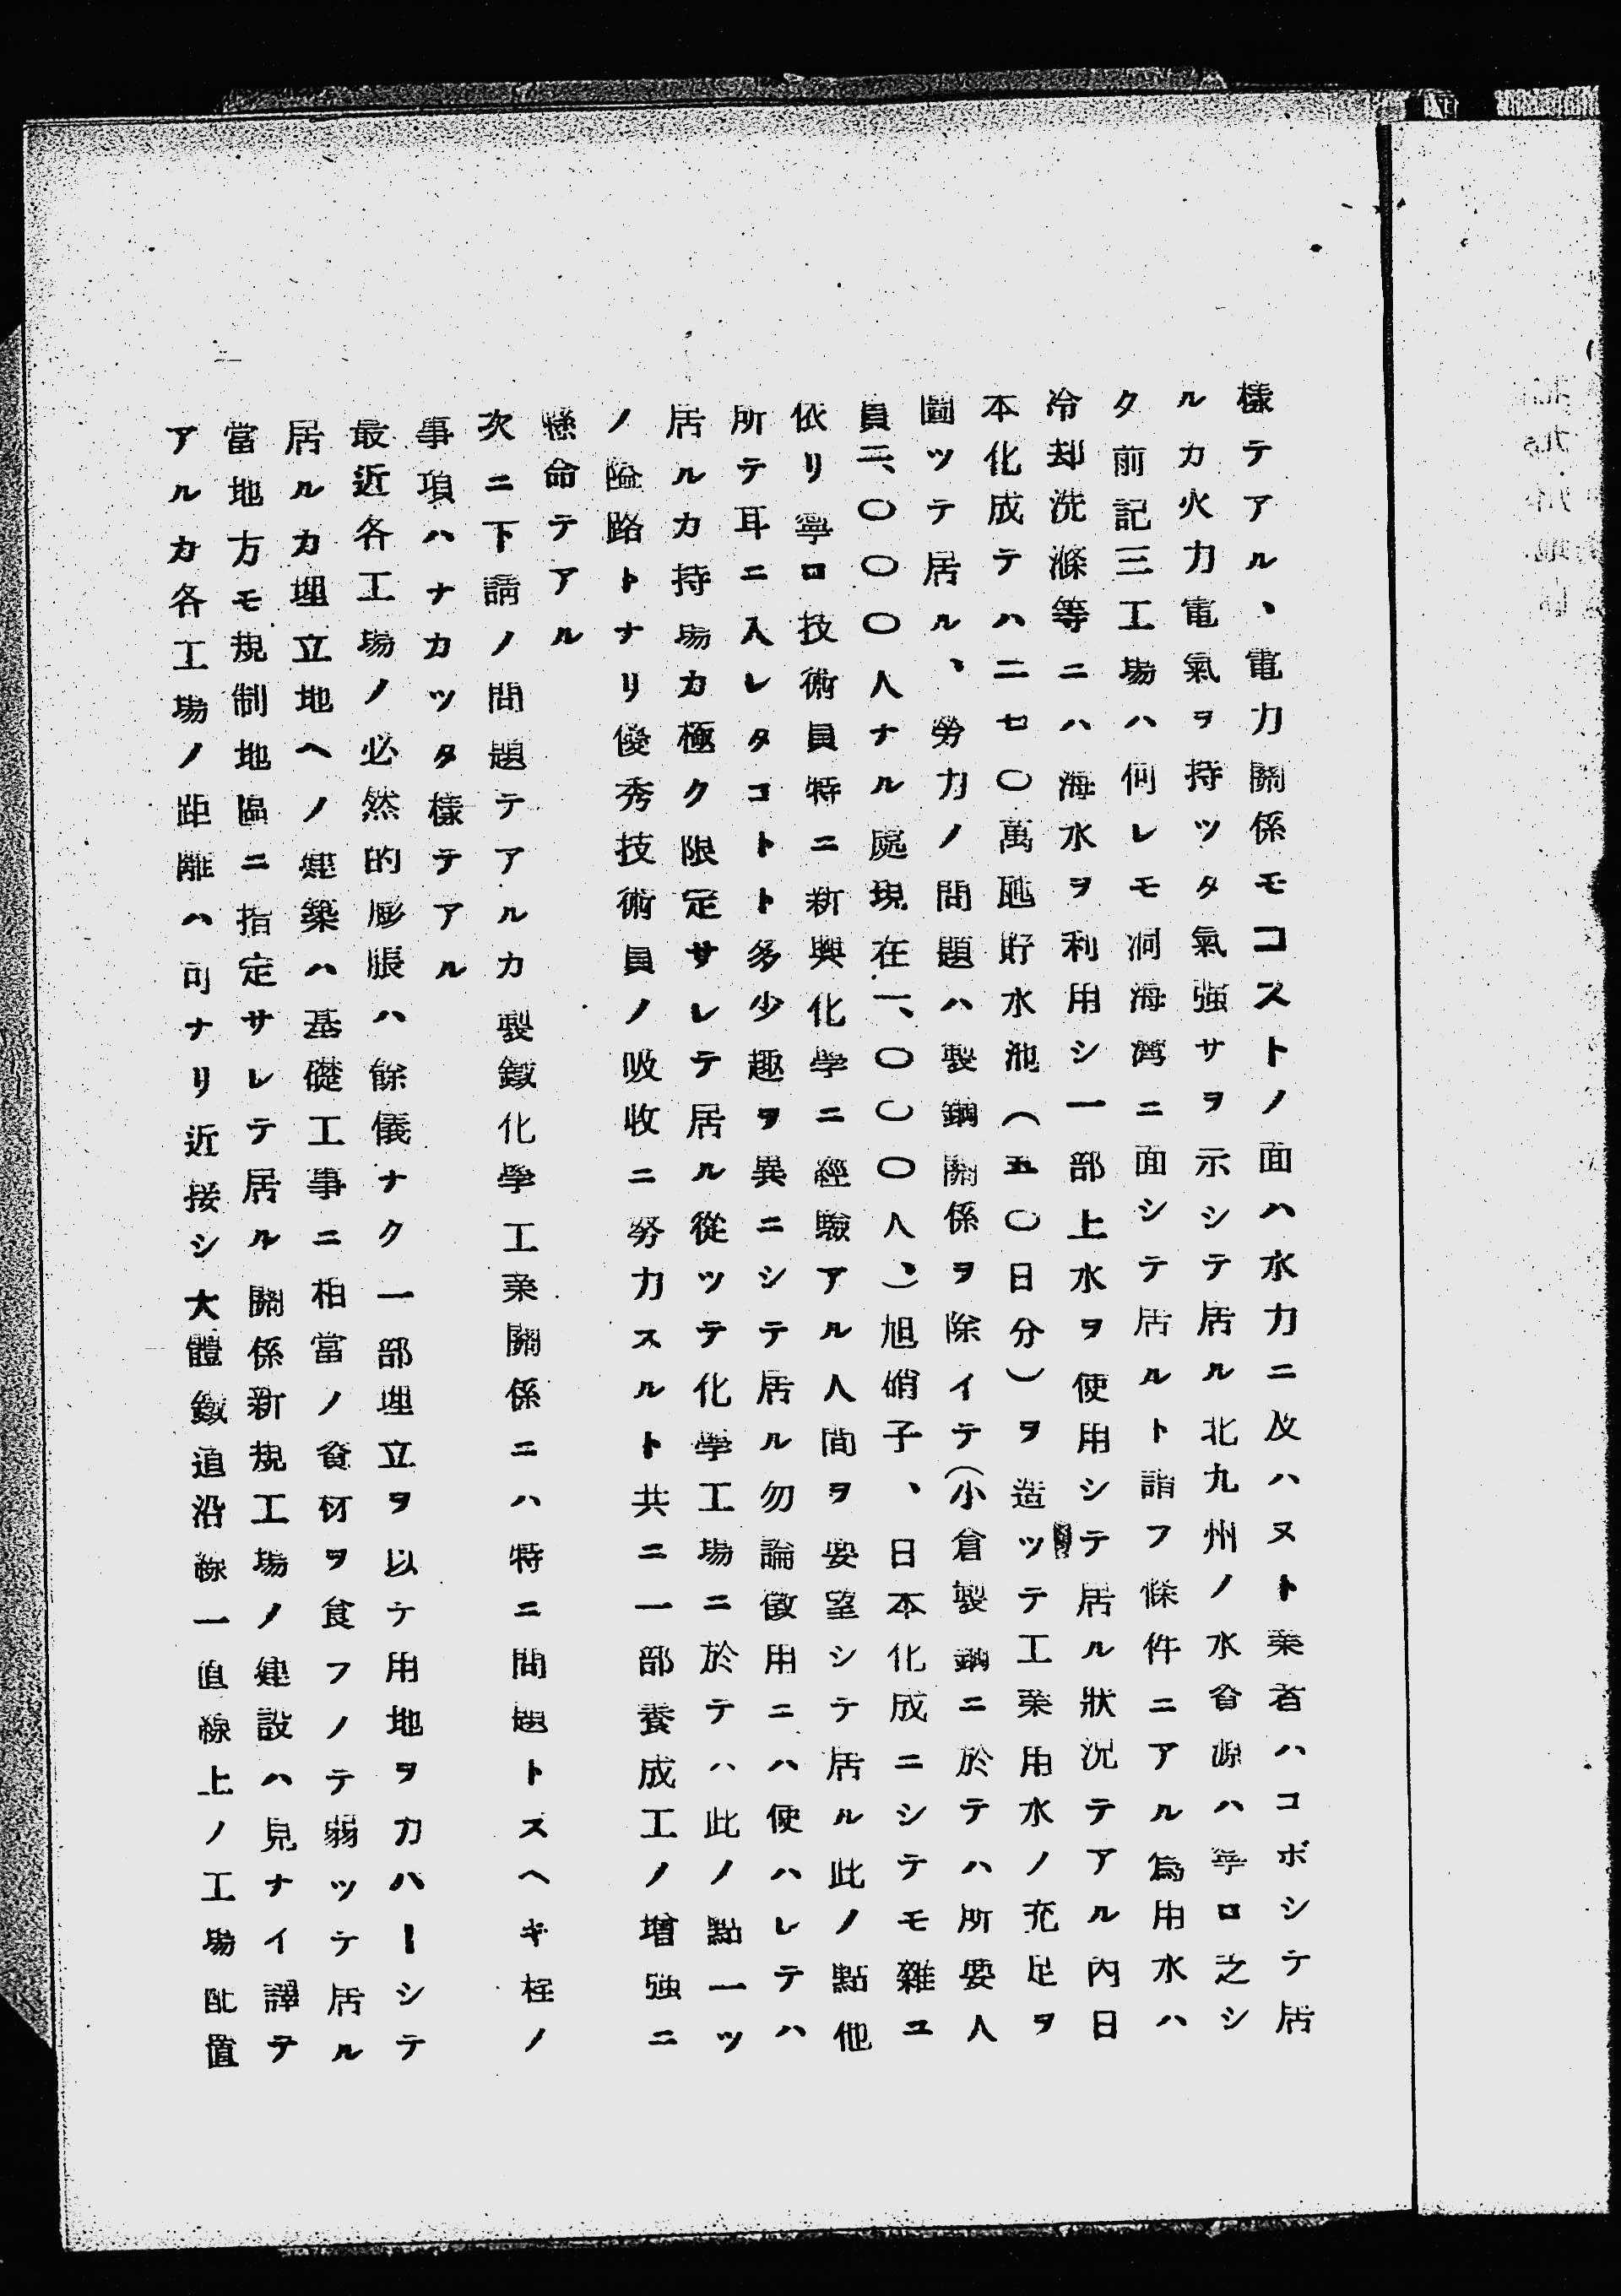 樣テアル、電力關係モコストノ面ハ水力ニ及ハヌト業者ハコボシテ居
ルカ火力電氣ヲ持ツタ氣强サヲ示シテ居ル北九州ノ水資源ハ寧ロ之シ
タ前記三工場ハ何レモ洞海灣ニ面シテ居ルト謂フ條件ニアル為用水ハ
冷却洗滌等ニハ海水ヲ利用シ一部上水ヲ使用シテ居ル狀況テアル內日
本化成テハ二七〇萬瓲貯水池(五〇日分)ヲ造ツテ工業用水ノ充足ヲ
圖ツテ居ル、勞力ノ問題ハ製鋼關係ヲ除イテ(小倉製鋼ニ於テハ所要人
員二、〇〇〇人ナル處現在一、〇〇〇人、)旭硝子、日本化成ニシテモ雜ユ
依リ寧ロ技術員特ニ新興化学ニ經驗アル人間ヲ要望シテ居ル此ノ點他
所テ耳ニ入レタコトト多少趣ヲ異ニシテ居ル勿論徵用ニハ使ハレテハ
居ルカ持場カ極ク限定サレテ居ル從ツテ化学工場ニ於テハ此ノ點一ツ
ノ隘路トナリ優秀技術員ノ吸收ニ努力スルト共ニ一部養成工ノ增强ニ
懸命テアル
次ニ下請ノ問題テアルカ製鐵化學工業關係ニハ特ニ問題トスヘキ程ノ
事項ハナカツタ樣テアル
最近各工場ノ必然的膨脹ハ餘儀ナク一部埋立ヲ以テ用地ヲカハーシテ
居ルカ埋立地ヘノ建築ハ基礎工事ニ相當ノ資材ヲ食フノテ弱ツテ居ル
當地方モ規制地區ニ指定サレテ居ル關係新規工場ノ建設ハ見ナイ譯テ
アルカ各工場ノ距離ハ可ナリ近接シ大體鐵道沿線一直線上ノ工場配置